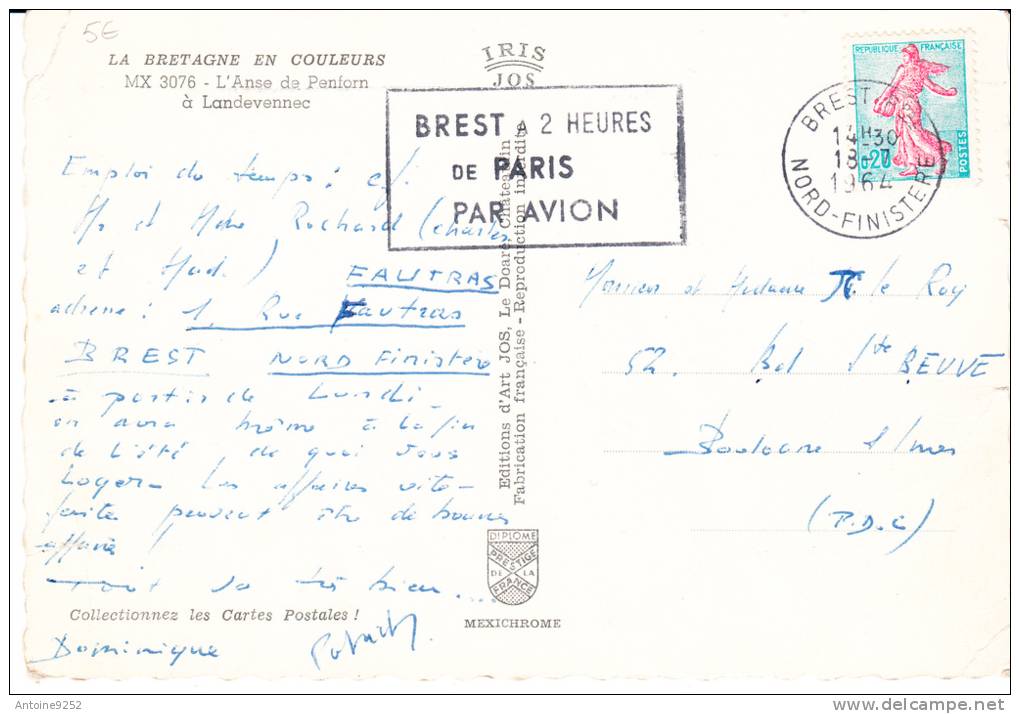 5€
LA BRETAGNE EN COULEURS
MX 3076 - L'Anse de Penforn
à Landevennec
IRIS
JOS
BREST A 2 HEURES
DE PARIS
PAR AVION
REPUBLIQUE FRANÇAISE
0,20
POSTES
BREST
14H30
18-7
1964
NORD-FINISTERE
Emploi du temps : cf.
Mr et Mme Rochard (Charles
et Mad.) FAUTRAS
adresse : 1, Rue Fautras
BREST NORD Finistère
à partir de Lundi
on aura même à la fin
de l'été, de quoi vous
loger - Les affaires vite
faites peuvent être de bonnes
affaires !
Tout va très bien....
Collectionnez les Cartes Postales !
Dominique Patrick
Editions d'Art JOS, Le Doaré, Chateaulin
Fabrication française - Reproduction interdite
DIPLOME
PRESTIGE
DE LA
FRANCE
MEXICHROME
Monsieur et Madame le Roy
52. Bd Ste BEUVE
Boulogne s/mer
(P.D.C)
Antoine9252